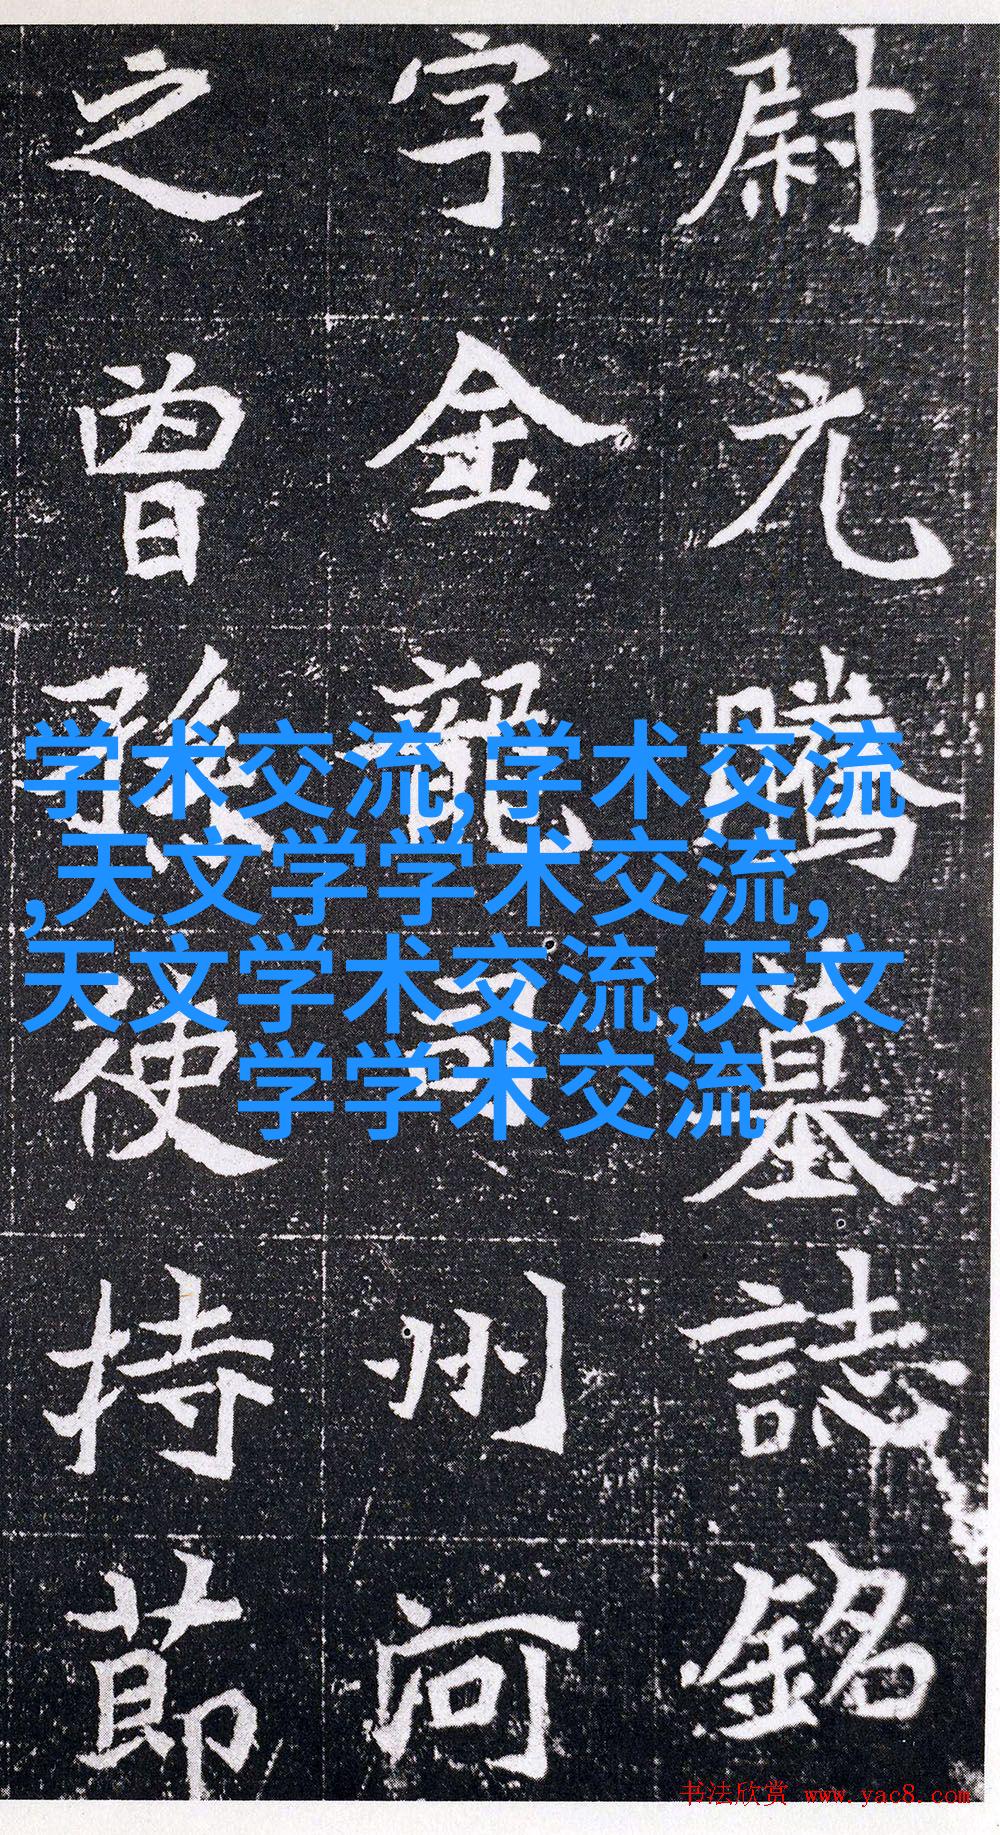 尉元騰墓誌銘
字金龍司州河
之曾孫使持節
学术交流,学术交流
,天文学学术交流,
天文学术交流,天文
学学术交流
书法欣赏 www.yac8.com